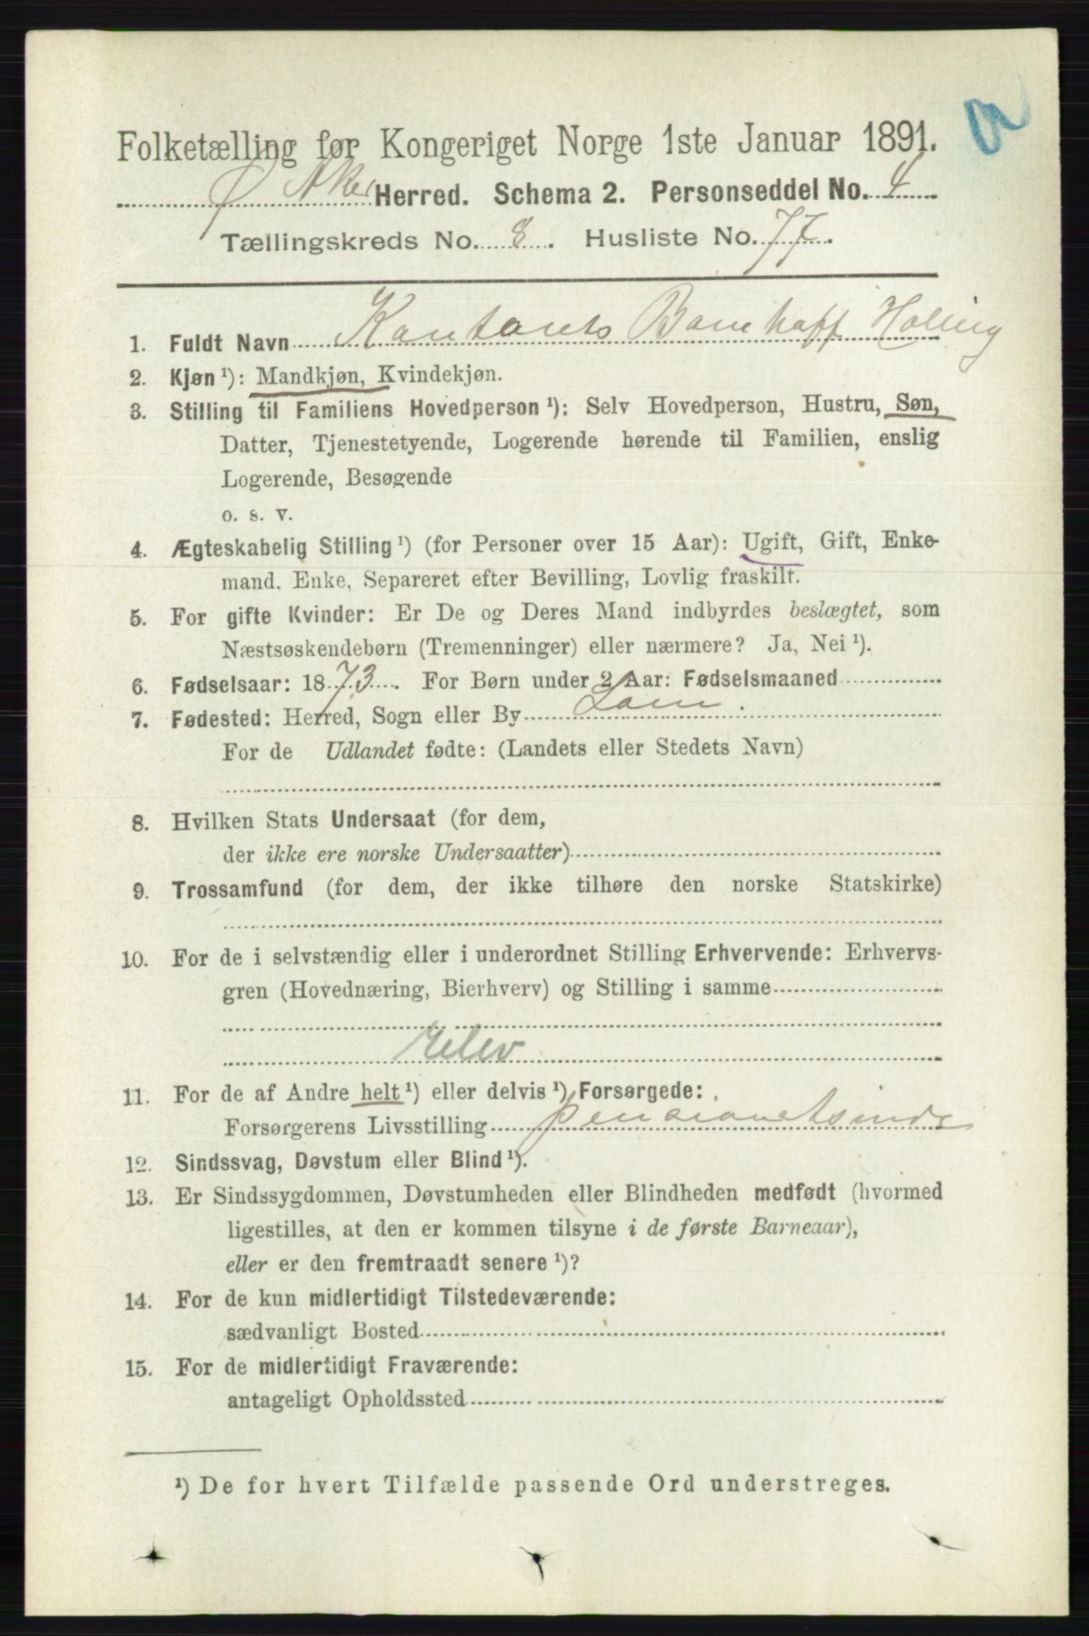 Folketælling for Kongeriget Norge 1ste Januar 1891.
Ø Aker Herred. Schema 2. Personseddel No. 4
Tællingskreds No. 8. Husliste No. 77.
1. Fuldt Navn Holling
2. Kjøn ¹): Mandkjøn, Kvindekjøn.
3. Stilling til Familiens Hovedperson ¹): Selv Hovedperson, Hustru, Søn,
Datter, Tjenestetyende, Logerende hørende til Familien, enslig
Logerende, Besøgende
o. s. v.
4. Ægteskabelig Stilling ¹) (for Personer over 15 Aar): Ugift, Gift, Enke-
mand, Enke, Separeret efter Bevilling, Lovlig fraskilt.
5. For gifte Kvinder: Er De og Deres Mand indbyrdes beslægtet, som
Næstsøskendebørn (Tremenninger) eller nærmere? Ja, Nei ¹).
6. Fødselsaar: 1873. For Børn under 2 Aar: Fødselsmaaned
7. Fødested: Herred, Sogn eller By Lom.
For de Udlandet fødte: (Landets eller Stedets Navn)
8. Hvilken Stats Undersaat (for dem,
der ikke ere norske Undersaatter)
9. Trossamfund (for dem, der ikke tilhøre den norske Statskirke)
10. For de i selvstændig eller i underordnet Stilling Erhvervende: Erhvervs-
gren (Hovednæring, Bierhverv) og Stilling i samme
Elev
11. For de af Andre helt ¹) eller delvis ¹) Forsørgede:
Forsørgerens Livsstilling
12. Sindssvag, Døvstum eller Blind ¹).
13. Er Sindssygdommen, Døvstumheden eller Blindheden medfødt (hvormed
ligestilles, at den er kommen tilsyne i de første Barneaar),
eller er den fremtraadt senere ¹)?
14. For de kun midlertidigt Tilstedeværende:
sædvanligt Bosted
15. For de midlertidigt Fraværende:
antageligt Opholdssted
¹) De for hvert Tilfælde passende Ord understreges.